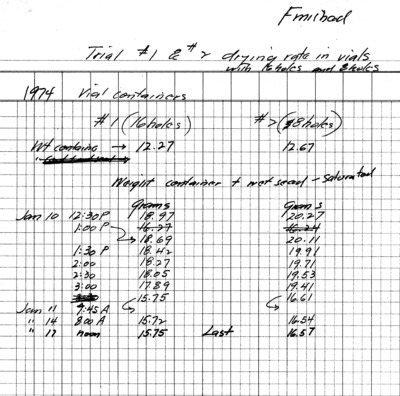 Finished
Trial #1 & #2 drying rate in vials
with 16 holes and 8 holes
1974 Vial containers
#1 (16 holes) #2 (8 holes)
Wt containe → 12.27 12.67
Weight container + wet seed - saturated
grams grams
Jan 10 12:30 P 18.97 20.27
1:00 P 16.27 16.24
18.69 20.11
1:30 P 18.42 19.91
2:00 18.27 19.71
2:30 18.05 19.53
3:00 17.89 19.41
15.75 16.61
Jan 11 9:45 A
" 14 8:00 A 15.72 16.54
" 17 noon 15.75 Last 16.57